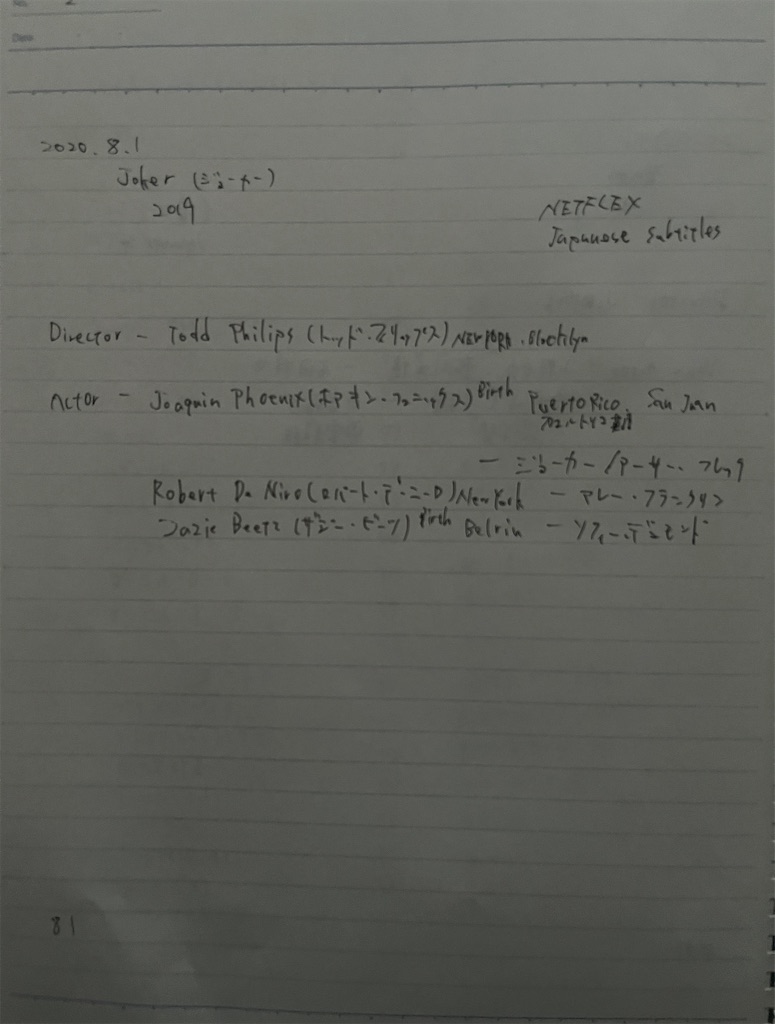 No. 2
Date
2020.8.1
Joker (ジョーカー)
2019
NETFLEX
Japanese Subtitles
Director - Todd Philips (トッド・フィリップス) NEW YORK. Blooklyn
Actor - Joaquin Phoenix (ホアキン・フェニックス) Birth PuertoRico, San Juan
プエルトリコ
- ジョーカー/アーサー・フレック
Robert De Niro (ロバート・デ・ニーロ) New York - マレー・フランクリン
Zazie Beetz (ザジー・ビーツ) Birth Belrin - ソフィー・デュモンド
81